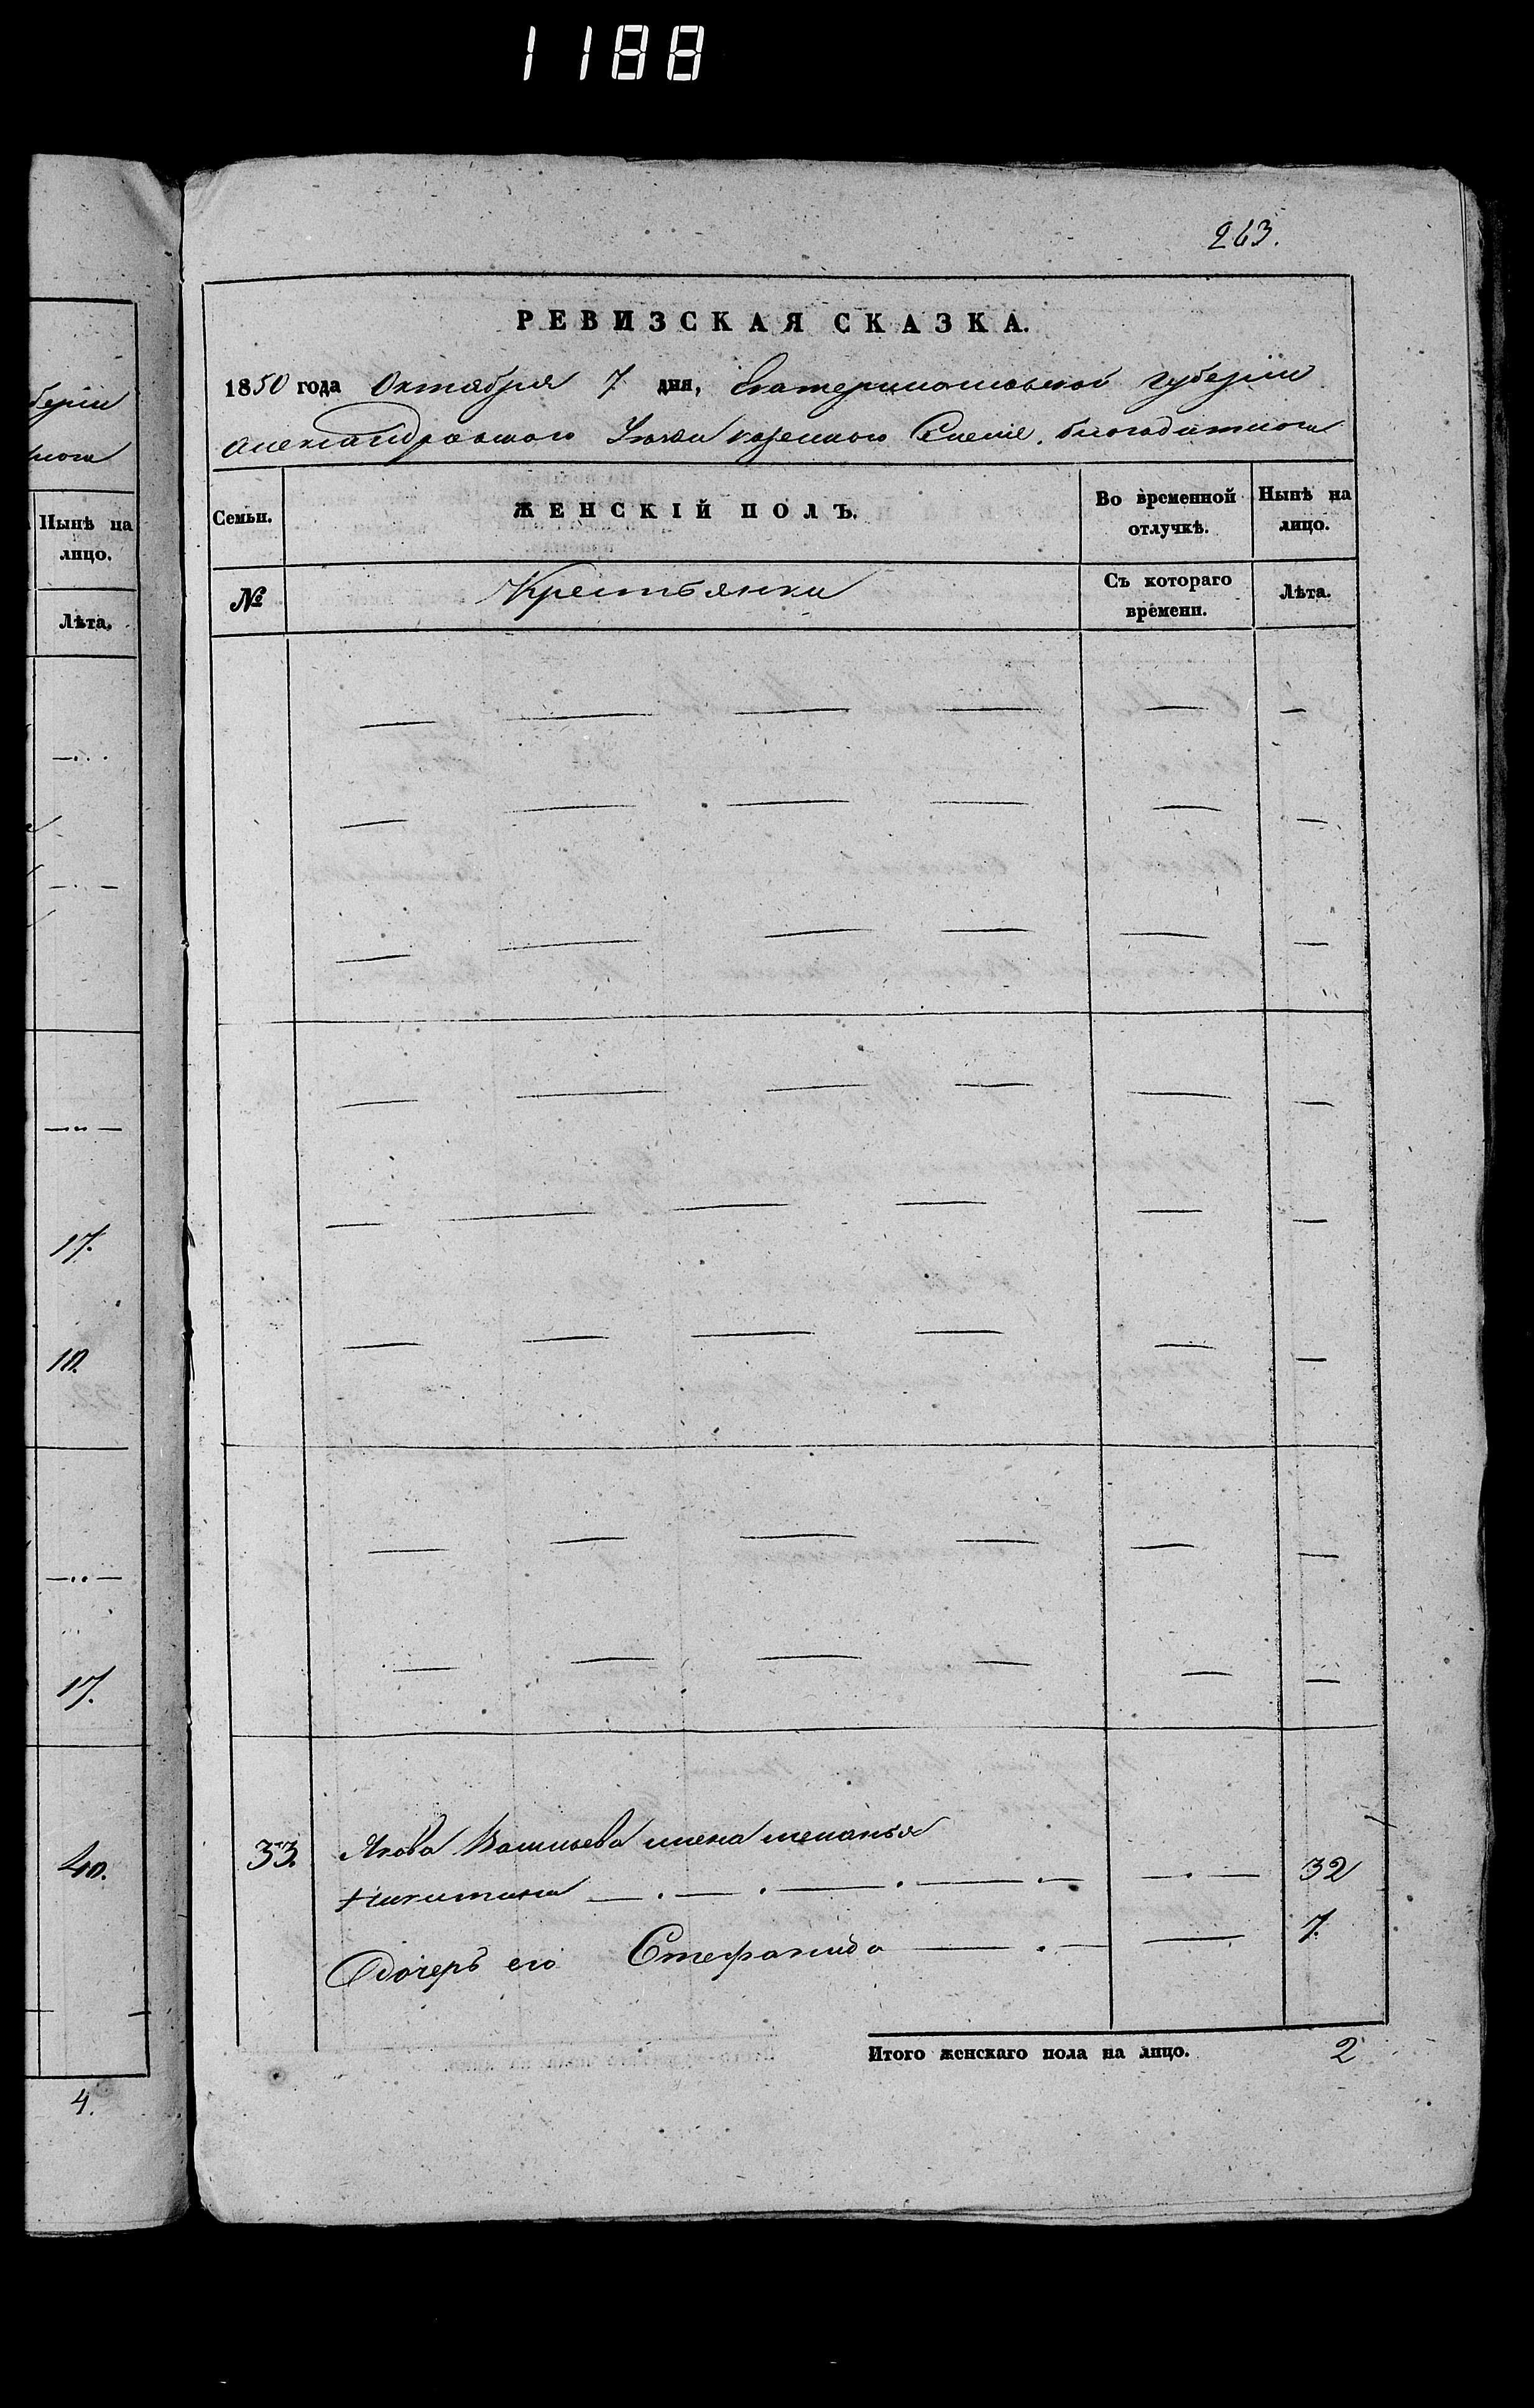 1188
берніи
Нынѣ на
лицо.
Лѣта.
17.
10.
17.
40.
4.
263.
РЕВИЗСКАЯ СКАЗКА.
1850 года Октября 7 дня, Екатеринославской губерніи
Александровского Уѣзда казенного Селенія. благодатного
Семьи.
ЖЕНСКІЙ ПОЛЪ.
Во временной
отлучкѣ.
Нынѣ на
лицо.
№
Крестьянки
Съ котораго
времени.
Лѣта.
33. Якова Васильева жена меланья
Никитина — . — . — . — . — — . — 32
Дочерь его Стефанида — . — — 7.
Итого женскаго пола на лицо. 2